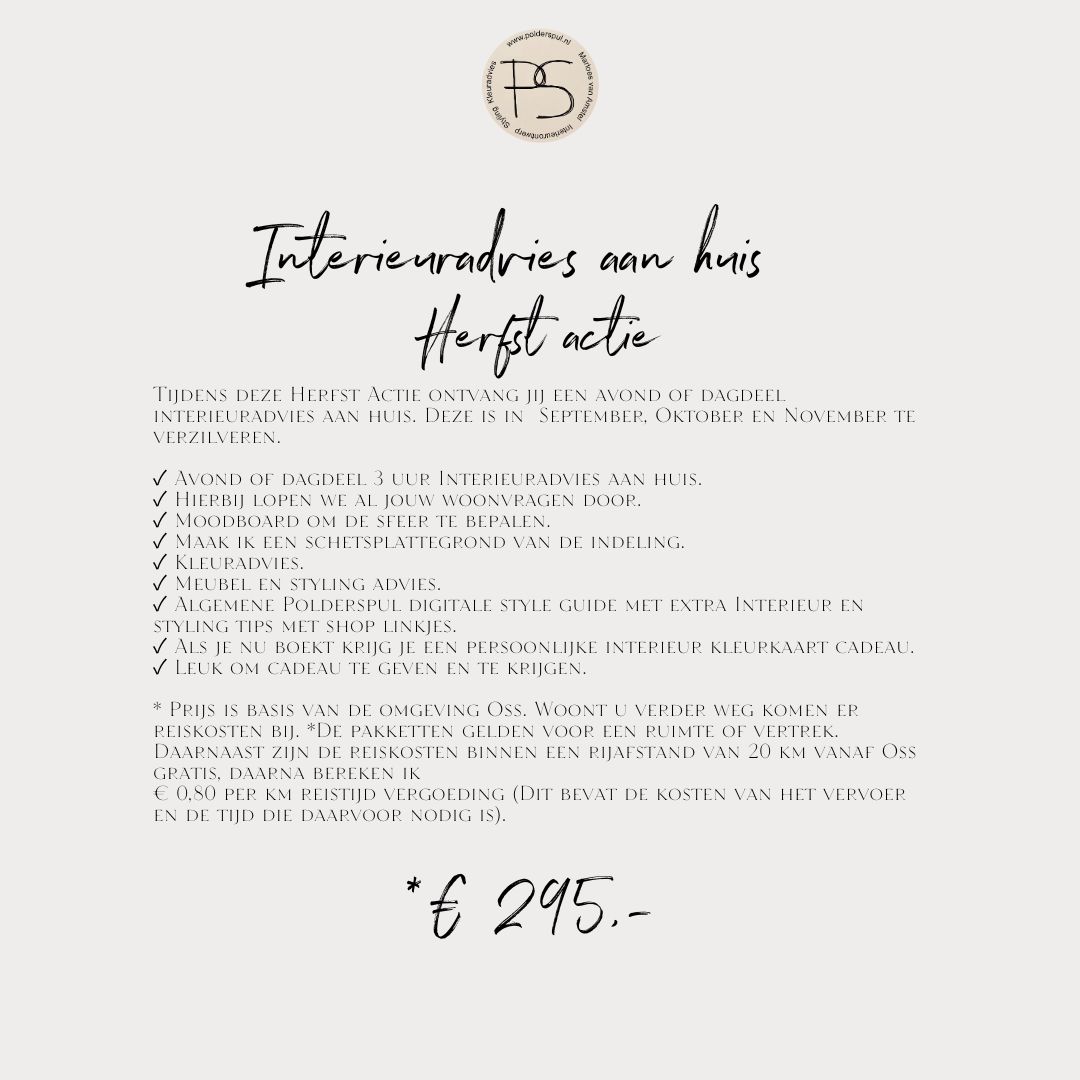 www.polderspul.nl
Marloes van Amstel
Interieurontwerp
Styling Kleuradvies
PS
Interieuradvies aan huis
Herfst actie
Tijdens deze Herfst Actie ontvang jij een avond of dagdeel
interieuradvies aan huis. Deze is in September, Oktober en November te
verzilveren.
✓ Avond of dagdeel 3 uur Interieuradvies aan huis.
✓ Hierbij lopen we al jouw woonvragen door.
✓ Moodboard om de sfeer te bepalen.
✓ Maak ik een schetsplattegrond van de indeling.
✓ Kleuradvies.
✓ Meubel en styling advies.
✓ Algemene Polderspul digitale style guide met extra Interieur en
styling tips met shop linkjes.
✓ Als je nu boekt krijg je een persoonlijke interieur kleurkaart cadeau.
✓ Leuk om cadeau te geven en te krijgen.
* Prijs is basis van de omgeving Oss. Woont u verder weg komen er
reiskosten bij. *De pakketten gelden voor een ruimte of vertrek.
Daarnaast zijn de reiskosten binnen een rijafstand van 20 km vanaf Oss
gratis, daarna bereken ik
€ 0,80 per km reistijd vergoeding (Dit bevat de kosten van het vervoer
en de tijd die daarvoor nodig is).
*€ 295.-